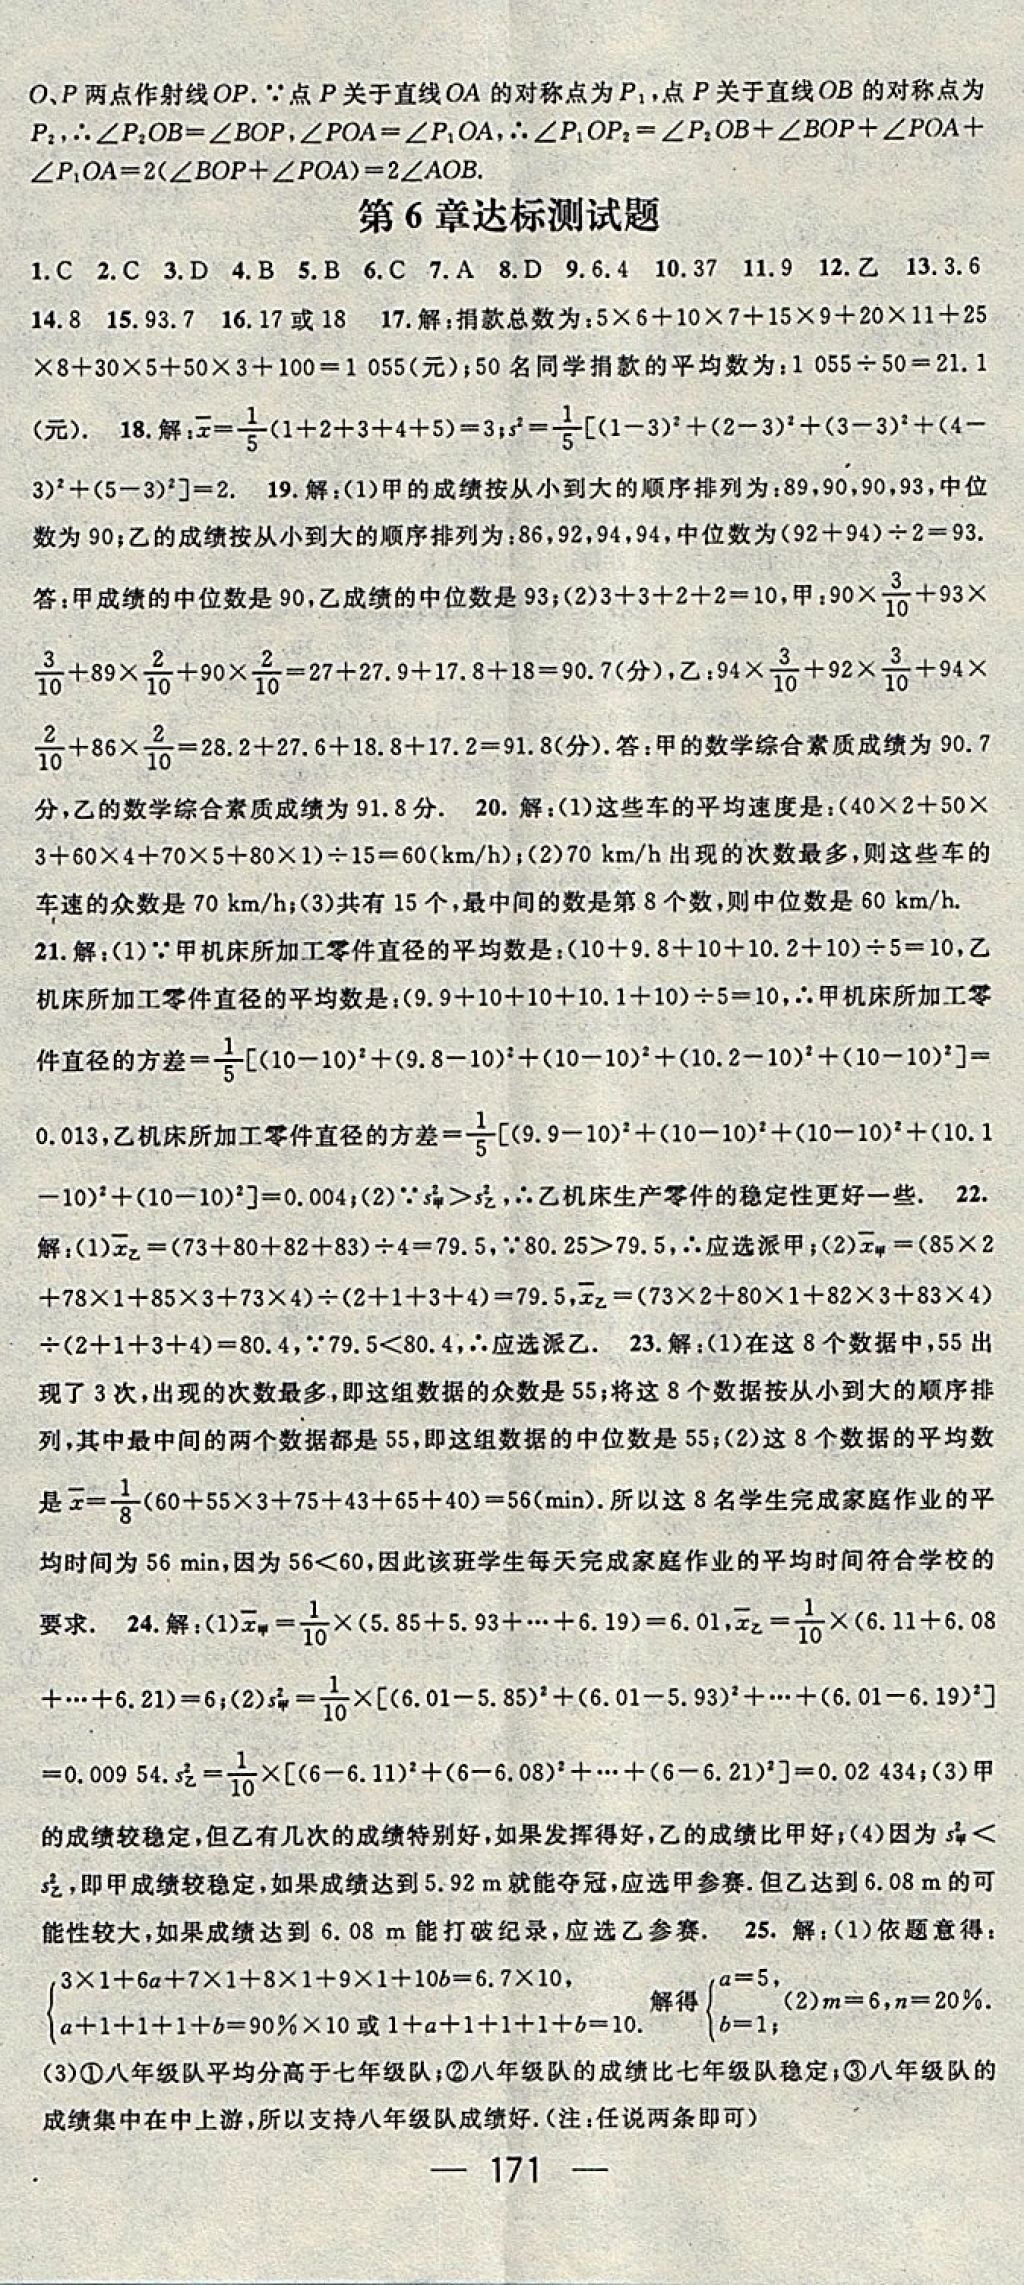 O、P两点作射线OP.∵点P关于直线OA的对称点为P₁,点P关于直线OB的对称点为
P₂,∴∠P₂OB=∠BOP,∠POA=∠P₁OA,∴∠P₁OP₂=∠P₂OB+∠BOP+∠POA+
∠P₁OA=2(∠BOP+∠POA)=2∠AOB.
第6章达标测试题
1.C 2.C 3.D 4.B 5.B 6.C 7.A 8.D 9.6.4 10.37 11.9 12.乙 13.3.6
14.8 15.93.7 16.17或18 17.解:捐款总数为:5×6+10×7+15×9+20×11+25
×8+30×5+50×3+100=1 055(元);50名同学捐款的平均数为:1 055÷50=21.1
(元). 18.解:x̄=1/5(1+2+3+4+5)=3;s²=1/5[(1-3)²+(2-3)²+(3-3)²+(4-
3)²+(5-3)²]=2. 19.解:(1)甲的成绩按从小到大的顺序排列为:89,90,90,93,中位
数为90;乙的成绩按从小到大的顺序排列为:86,92,94,94,中位数为(92+94)÷2=93.
答:甲成绩的中位数是90,乙成绩的中位数是93;(2)3+3+2+2=10,甲:90×3/10+93×
3/10+89×2/10+90×2/10=27+27.9+17.8+18=90.7(分),乙:94×3/10+92×3/10+94×
2/10+86×2/10=28.2+27.6+18.8+17.2=91.8(分).答:甲的数学综合素质成绩为90.7
分,乙的数学综合素质成绩为91.8分. 20.解:(1)这些车的平均速度是:(40×2+50×
3+60×4+70×5+80×1)÷15=60(km/h);(2)70 km/h出现的次数最多,则这些车的
车速的众数是70 km/h;(3)共有15个,最中间的数是第8个数,则中位数是60 km/h.
21.解:(1)∵甲机床所加工零件直径的平均数是:(10+9.8+10+10.2+10)÷5=10,乙
机床所加工零件直径的平均数是:(9.9+10+10+10.1+10)÷5=10,∴甲机床所加工零
件直径的方差=1/5[(10-10)²+(9.8-10)²+(10-10)²+(10.2-10)²+(10-10)²]=
0.013,乙机床所加工零件直径的方差=1/5[(9.9-10)²+(10-10)²+(10-10)²+(10.1
-10)²+(10-10)²]=0.004;(2)∵s²甲>s²乙,∴乙机床生产零件的稳定性更好一些. 22.
解:(1)x̄乙=(73+80+82+83)÷4=79.5,∵80.25>79.5,∴应选派甲;(2)x̄甲=(85×2
+78×1+85×3+73×4)÷(2+1+3+4)=79.5,x̄乙=(73×2+80×1+82×3+83×4)
÷(2+1+3+4)=80.4,∵79.5<80.4,∴应选派乙. 23.解:(1)在这8个数据中,55出
现了3次,出现的次数最多,即这组数据的众数是55;将这8个数据按从小到大的顺序排
列,其中最中间的两个数据都是55,即这组数据的中位数是55;(2)这8个数据的平均数
是x̄=1/8(60+55×3+75+43+65+40)=56(min).所以这8名学生完成家庭作业的平
均时间为56 min,因为56<60,因此该班学生每天完成家庭作业的平均时间符合学校的
要求. 24.解:(1)x̄甲=1/10×(5.85+5.93+…+6.19)=6.01,x̄乙=1/10×(6.11+6.08
+…+6.21)=6;(2)s²甲=1/10×[(6.01-5.85)²+(6.01-5.93)²+…+(6.01-6.19)²]
=0.009 54.s²乙=1/10×[(6-6.11)²+(6-6.08)²+…+(6-6.21)²]=0.02 434;(3)甲
的成绩较稳定,但乙有几次的成绩特别好,如果发挥得好,乙的成绩比甲好;(4)因为s²甲<
s²乙,即甲成绩较稳定,如果成绩达到5.92 m就能夺冠,应选甲参赛.但乙达到6.08 m的可
能性较大,如果成绩达到6.08 m能打破纪录,应选乙参赛. 25.解:(1)依题意得:
{3×1+6a+7×1+8×1+9×1+10b=6.7×10,
a+1+1+1+b=90%×10或1+a+1+1+1+b=10. 解得{a=5, b=1; (2)m=6,n=20%.
(3)①八年级队平均分高于七年级队;②八年级队的成绩比七年级队稳定;③八年级队的
成绩集中在中上游,所以支持八年级队成绩好.(注:任说两条即可)
— 171 —